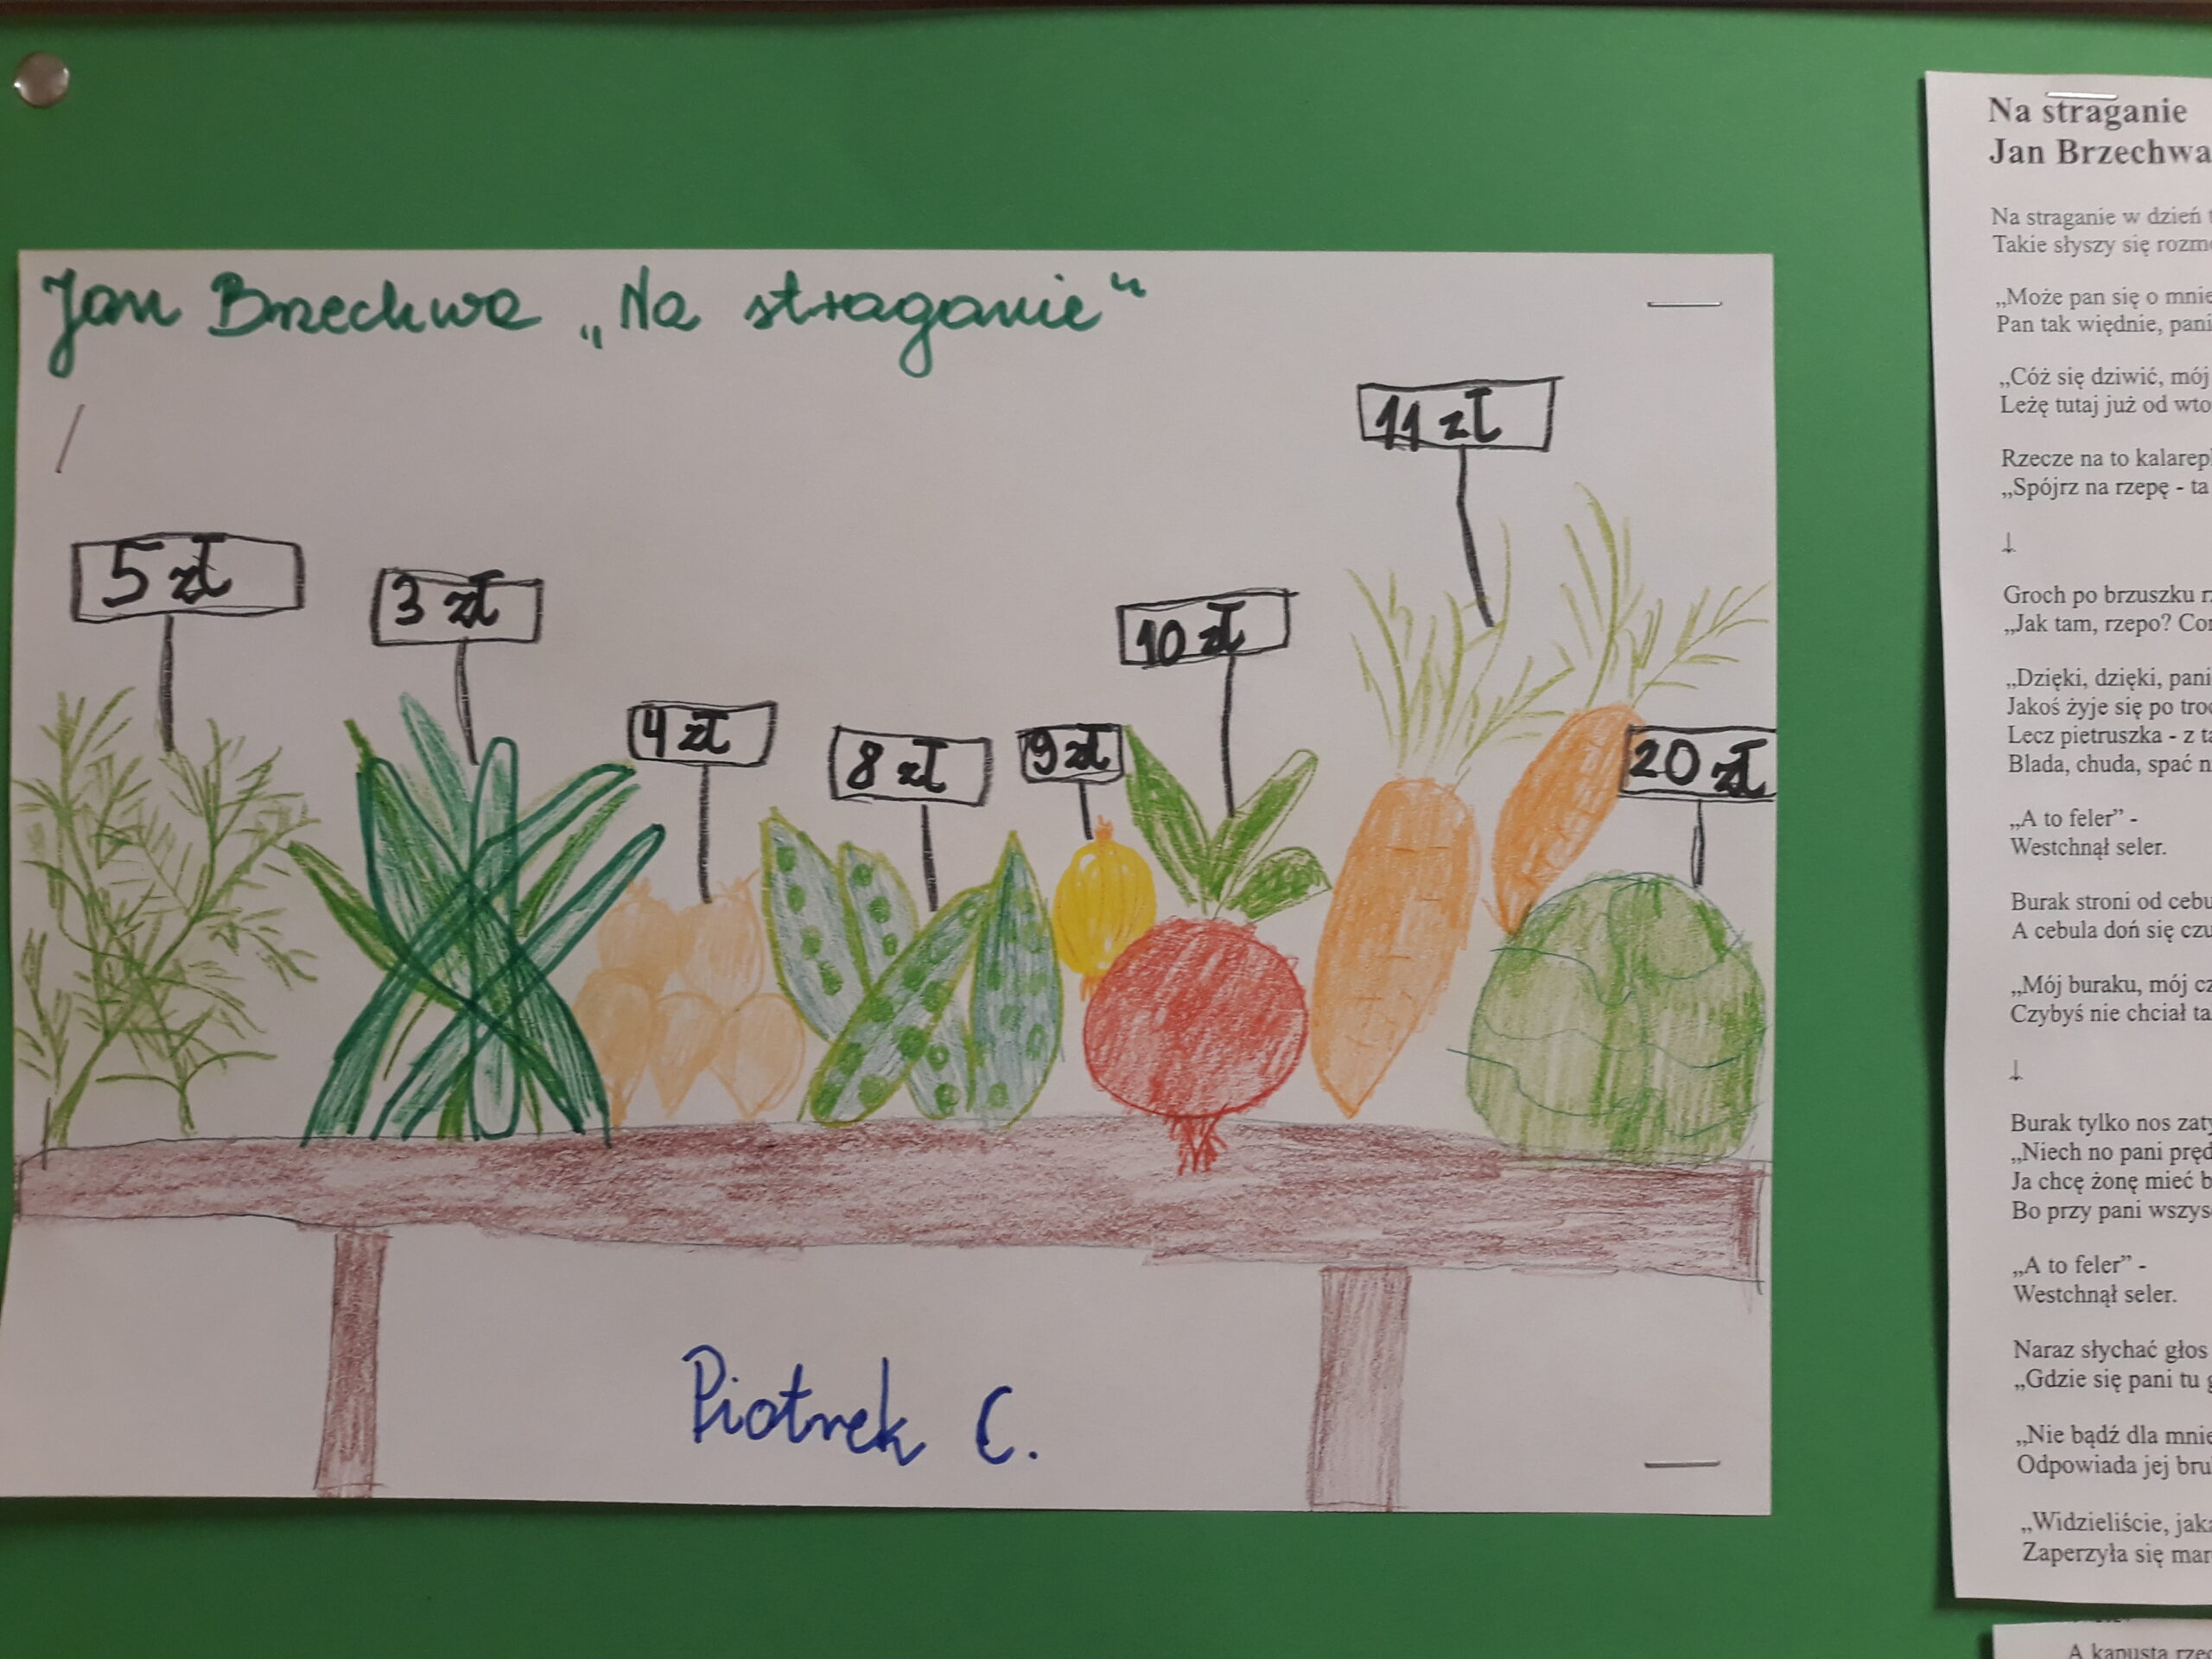 Jan Brzechwa „Na straganie"
5 zł
3 zł
4 zł
8 zł
9 zł
10 zł
11 zł
20 zł
Piotrek C.
Na straganie
Jan Brzechwa
Na straganie w dzień
Takie słyszy się
„Może pan się o mnie
Pan tak więdnie,
„Cóż się dziwić, mój
Leżę tutaj już od
Rzecze na to
„Spójrz na rzepę - ta
↓
Groch po brzuszku
„Jak tam, rzepo?
„Dzięki, dzięki,
Jakoś żyje się po
Lecz pietruszka - z
Blada, chuda, spać
„A to feler” -
Westchnął seler.
Burak stroni od
A cebula doń się
„Mój buraku, mój
Czybyś nie chciał
↓
Burak tylko nos
„Niech no pani
Ja chcę żonę mieć
Bo przy pani
„A to feler” -
Westchnął seler.
Naraz słychać głos
„Gdzie się pani tu
„Nie bądź dla mnie
Odpowiada jej
„Widzieliście,
Zaperzyła się
A kapusta